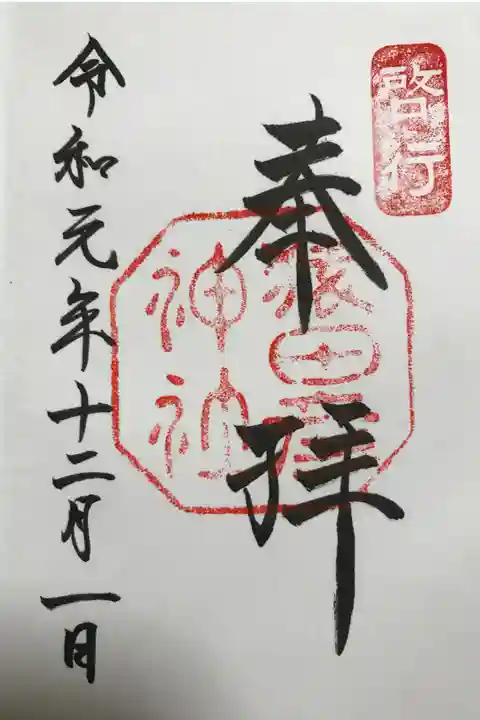 啓行
奉拝
猿田彦
神社
令和元年十二月一日